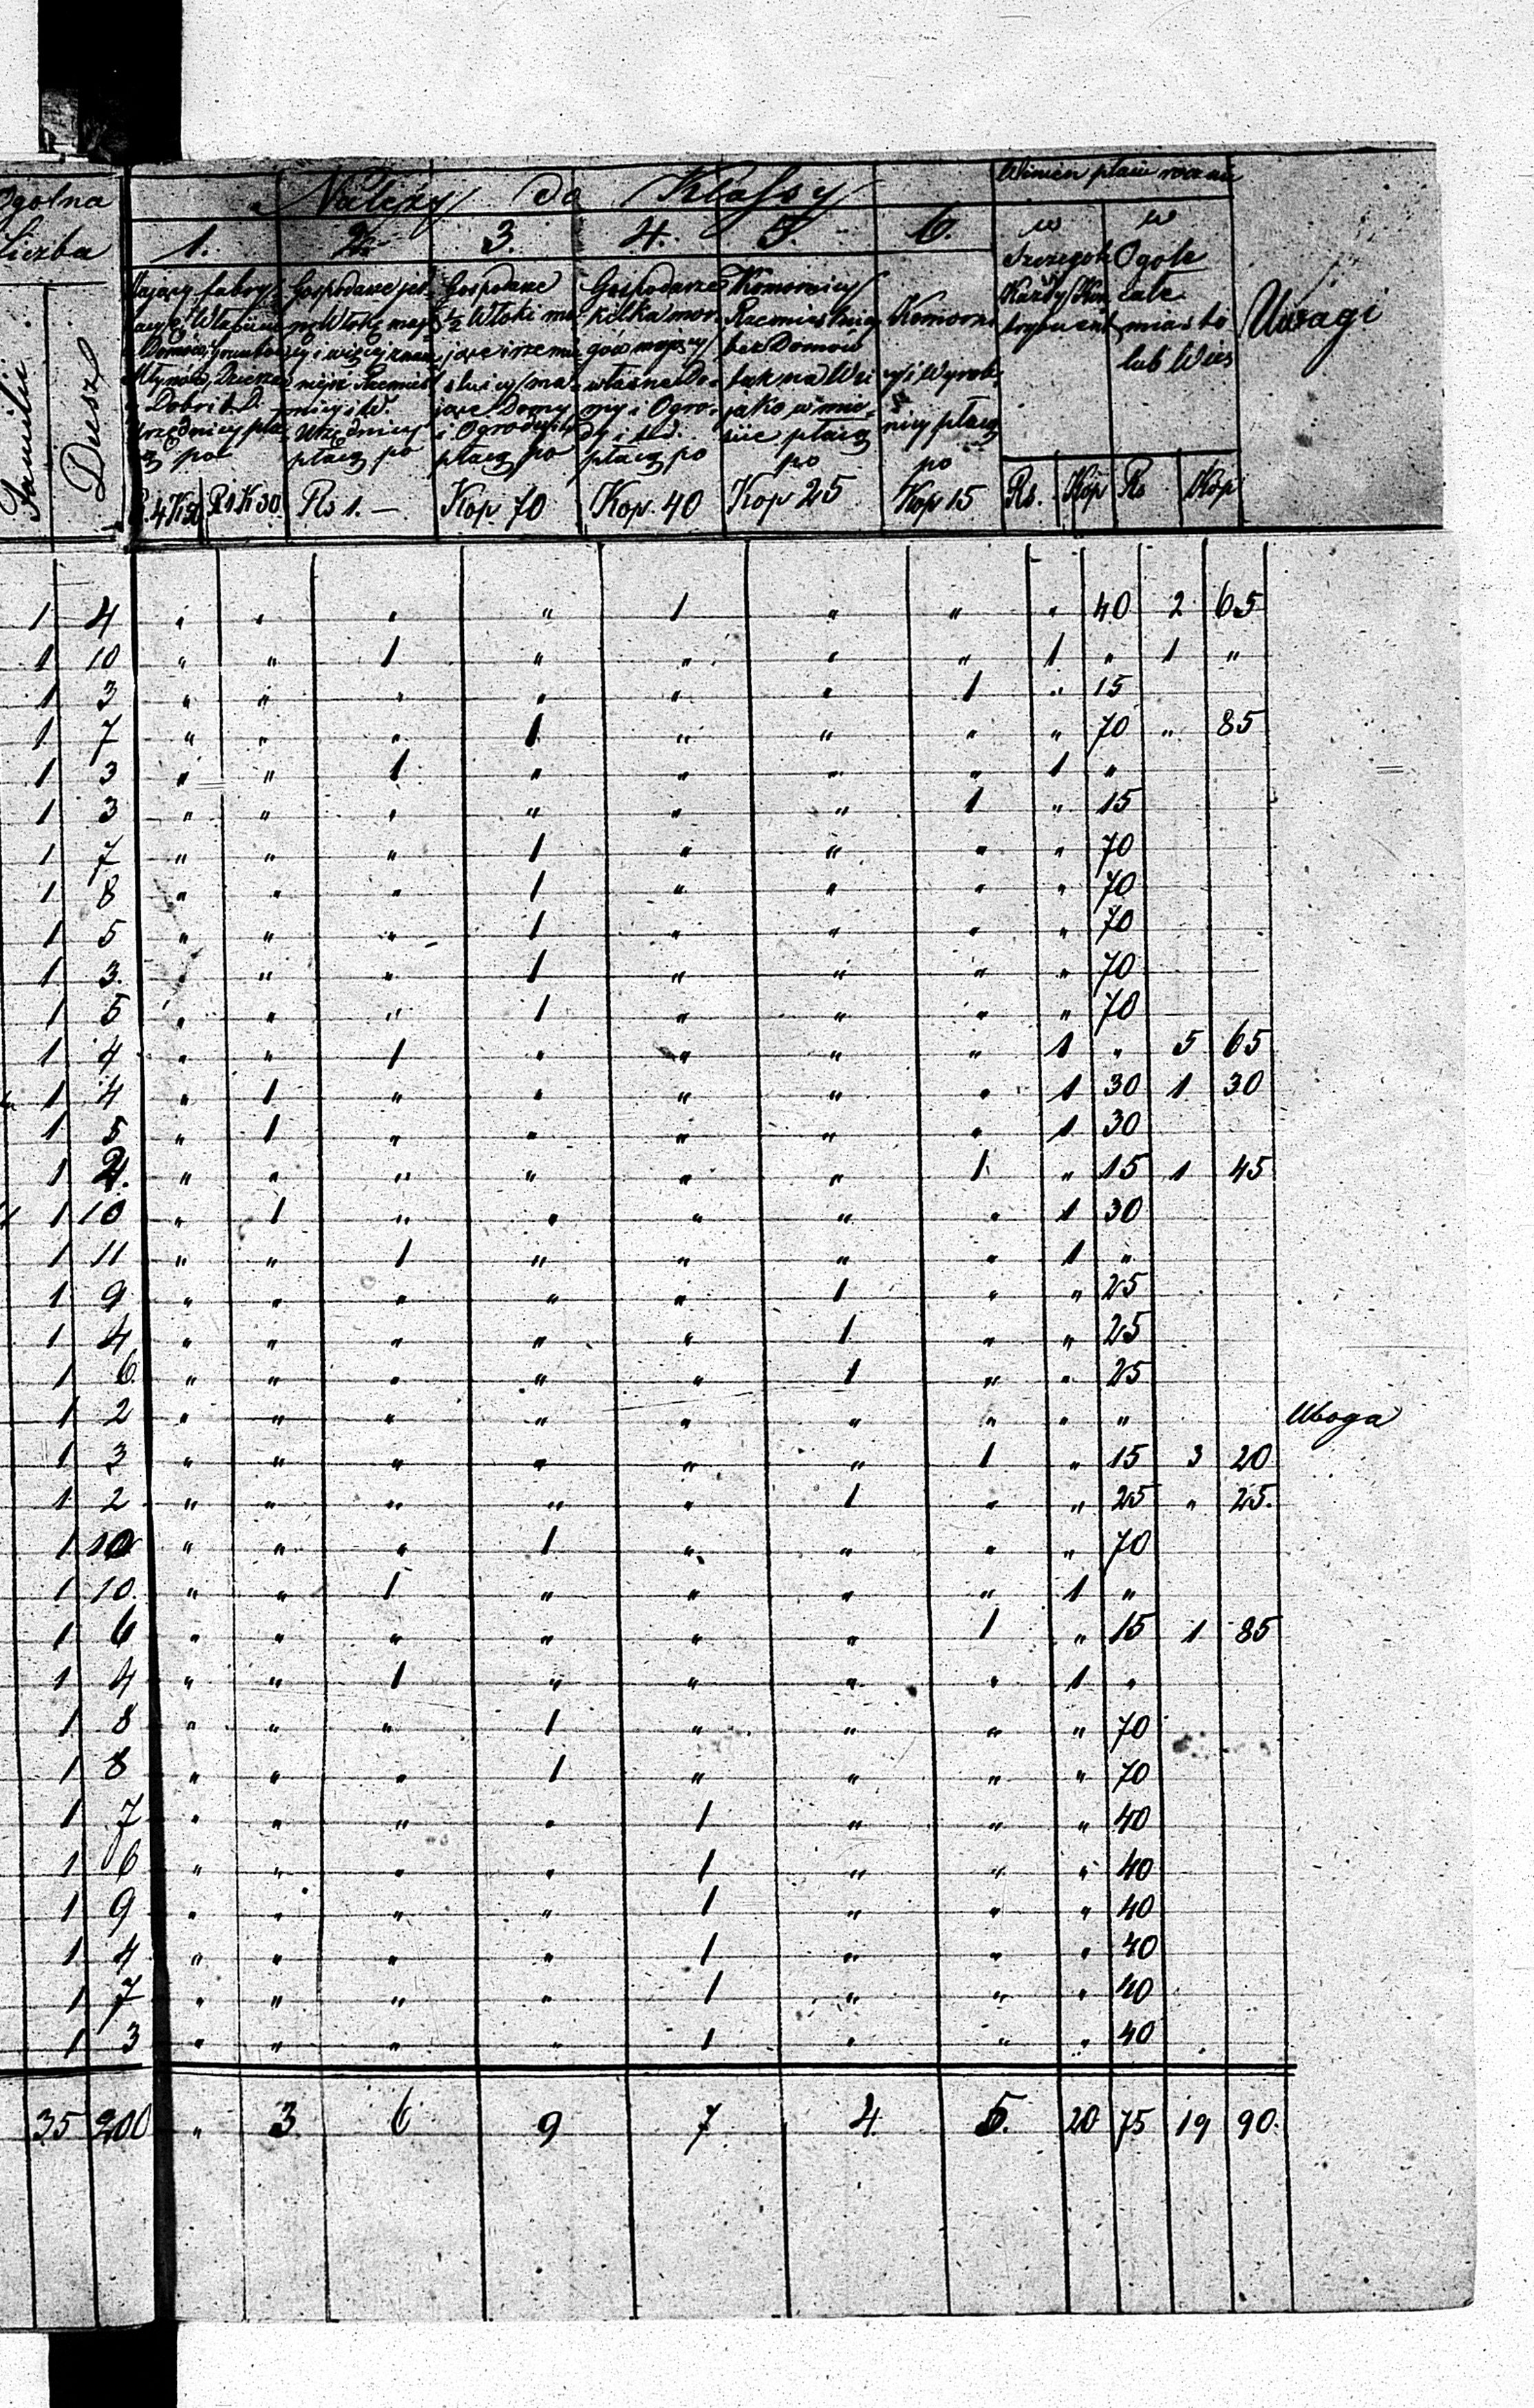 Ogólna Liczba
Należy do Klassy
Winien płacić rocznie
1. 2. 3. 4. 5. 6.
w Szczególe Każdy Kontrybuent
w Ogóle całe miasto lub Wieś
Uwagi
Familii Dusz
Gospodarze
½ Włóki
Domy
i Ogrody
płacą po
Gospodarze
kilka mor-
gów mający
własne Do-
my i Ogro-
dy i t.d.
płacą po
Komornicy
Rzemieślnicy
bez Domów
tak na Wsi
jako w mie-
ście płacą
po
Komorni-
cy i Wyrob-
nicy płacą
po
R. 4 K 50 R 1 K 30 Rs 1. — Kop. 70 Kop. 40 Kop 25 Kop 15 Rs. Kop Rs Kop
1 4 " " " " 1 " " " 40 2 65
1 10 " " 1 " " " " 1 " 1 "
1 3 " " " " " " 1 " 15
1 7 " " " 1 " " " " 70 " 85
1 3 " " 1 " " " " 1 "
1 3 " " " " " " 1 " 15
1 7 " " " 1 " " " " 70
1 8 " " " 1 " " " " 70
1 5 " " " 1 " " " " 70
1 3. " " " 1 " " " " 70
1 5 " " " 1 " " " " 70
1 4 " " 1 " " " " 1 " 5 65
1 4 " 1 " " " " " 1 30 1 30
1 5 " 1 " " " " " 1 30
1 2. " " " " " " 1 " 15 1 45
1 10 " 1 " " " " " 1 30
1 11 " " 1 " " " " 1 "
1 9 " " " " " 1 " " 25
1 4 " " " " " 1 " " 25
1 6 " " " " " 1 " " 25
1 2 " " " " " " " " " Uboga
1 3 " " " " " " 1 " 15 3 20
1 2 " " " " " 1 " " 25 " 25.
1 10 " " " 1 " " " " 70
1 10. " " 1 " " " " 1 "
1 6 " " " " " " 1 " 15 1 85
1 4 " " 1 " " " " 1 "
1 8 " " " 1 " " " " 70
1 8 " " " 1 " " " " 70
1 7 " " " " 1 " " " 40
1 6 " " " " 1 " " " 40
1 9 " " " " 1 " " " 40
1 4 " " " " 1 " " " 40
1 7 " " " " 1 " " " 40
1 3 " " " " 1 " " " 40
35 200 " 3 6 9 7 4 5. 20 75 19 90.